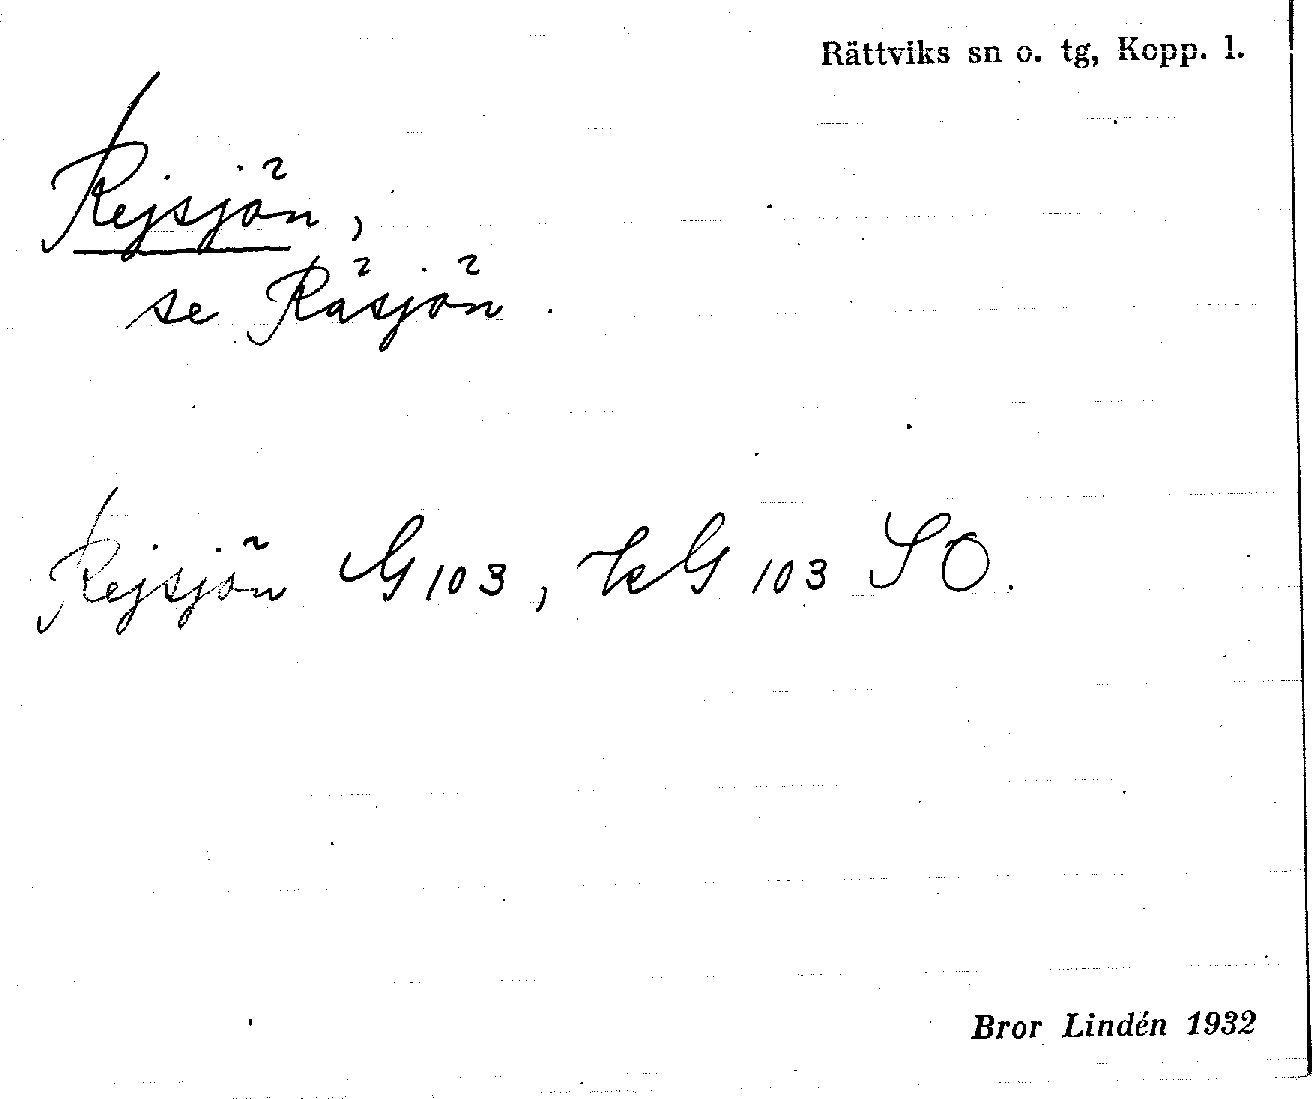 Rättviks sn o. tg, Kopp. l.
Rejsjön,
se Räsjön.
Rejsjön G 103, kG 103 SO.
Bror Lindén 1932